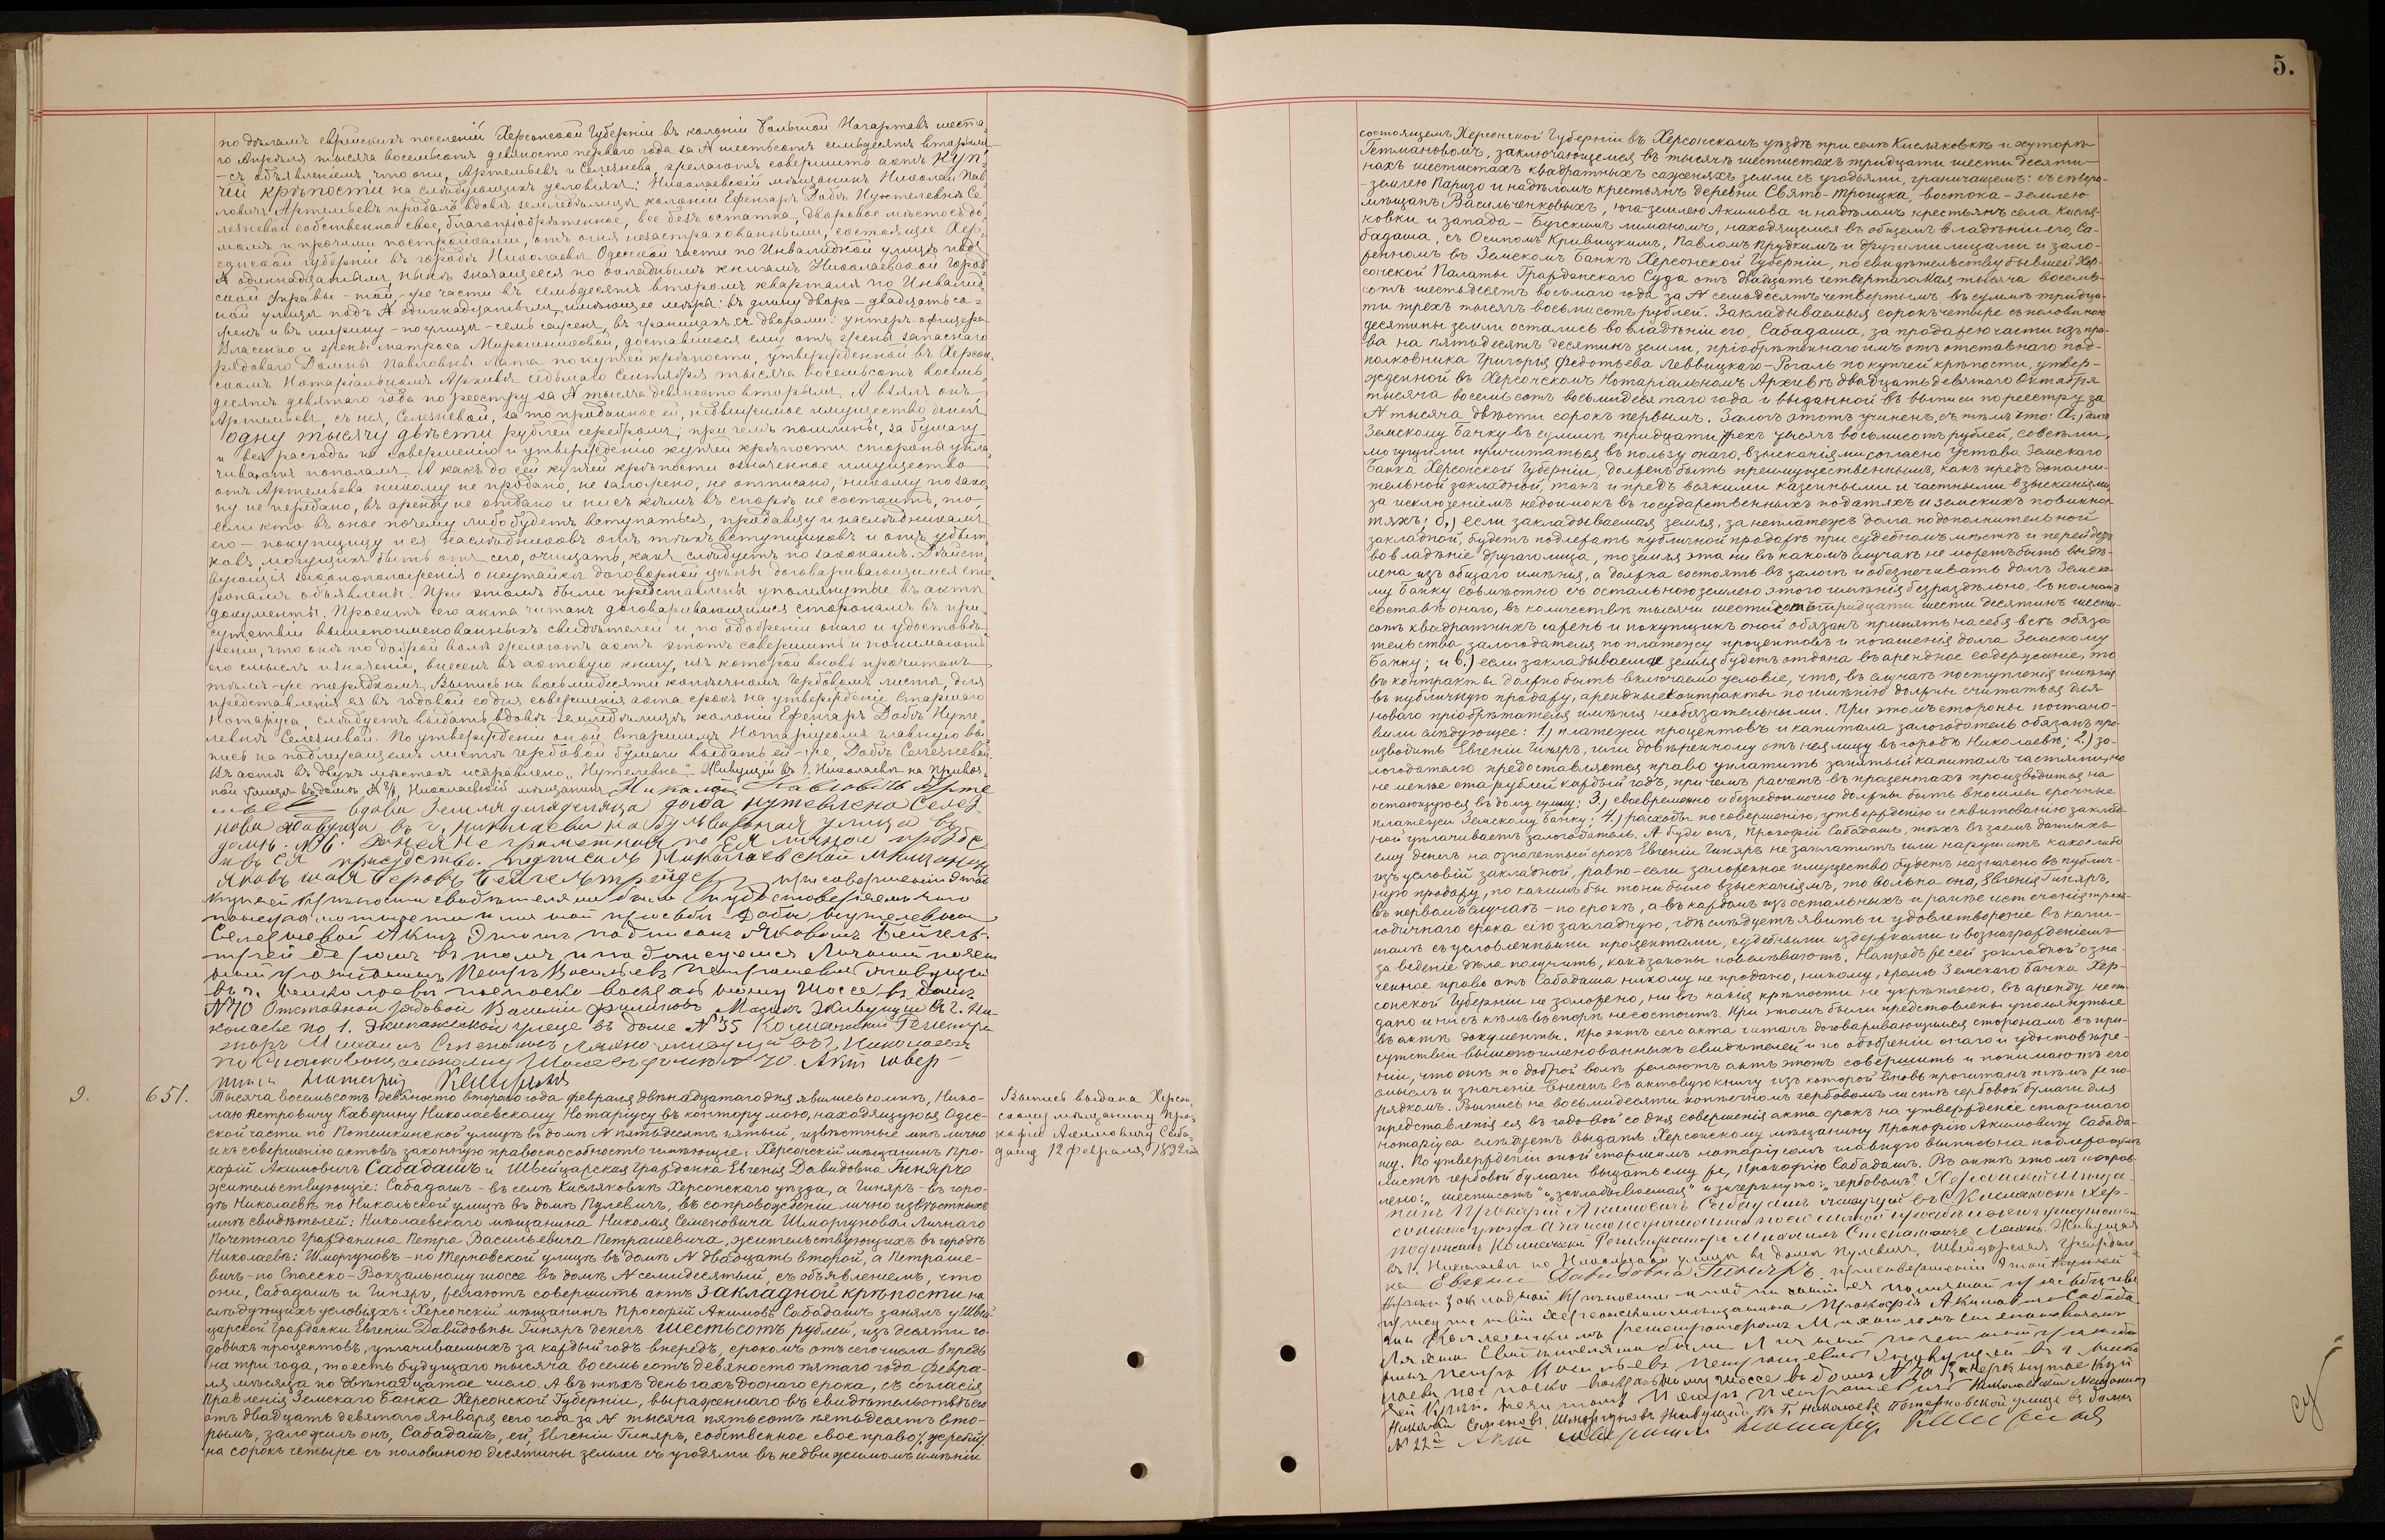 по дѣламъ еврейскихъ поселеній Херсонской Губерніи въ колоніи Большой Нагартавъ шеста-
го Апрѣля тысяча восемьсотъ девяносто перваго года за № шестьсотъ семьдесятъ вторымъ-
-съ объявленіемъ, что они, Артемьевъ и Селезнева, желаютъ совершить актъ Куп-
чей крѣпости на слѣдующихъ условіяхъ: Николаевскій мѣщанинъ Николай Пав-
ловичъ Артемьевъ продалъ вдовѣ земледѣльца колоніи Ефенгаръ Добѣ Нутелевнѣ Се-
лезневой собственное свое, благопріобрѣтенное, все безъ остатка, дворовое мѣсто съ до-
момъ и прочими постройками, отъ огня незастрахованными, состоящее Хер-
сонской губерніи въ городѣ Николаевѣ Одесской части по Инвалидной улицѣ подъ
№ одиннадцатымъ, нынѣ значащееся по окладнымъ книгамъ Николаевской Город-
ской Управы - той-же части въ семьдесятъ второмъ кварталѣ по Инвалид-
ной улицѣ подъ № одиннадцатымъ, имѣющее мѣры: въ длину двора - двадцать са-
жень и въ ширину - по улицѣ - семь сажень, въ границахъ съ дворами: унтеръ-офицера
Власенко и жены матроса Мирошниковой, доставшееся ему отъ жены запаснаго
рядоваго Домны Павловны Лата по купчей крѣпости, утвержденной въ Херсон-
скомъ Нотаріальномъ Архивѣ седьмаго Сентября тысяча восемьсотъ восемь-
десятъ девятаго года по реестру за № тысяча девяносто вторымъ. А взялъ онъ
Артемьевъ, съ нея, Селезневой, за то проданное ей, недвижимое имущество денегъ
одну тысячу двѣсти рублей серебромъ; при чемъ пошлины, за бумагу
и всѣ расходы по совершенію и утвержденію купчей крѣпости стороны упла-
чиваютъ пополамъ. А какъ до сей купчей крѣпости означенное имущество
отъ Артемьева никому не продано, не заложено, не отписано, никому по зако-
ну не передано, въ аренду не отдано и ни съ кѣмъ въ спорѣ не состоитъ, то
если кто въ оное почему либо будетъ вступаться, продавцу и наслѣдникамъ
его - покупщицу и ея наслѣдниковъ отъ тѣхъ вступщиковъ и отъ убыт-
ковъ, могущихъ быть отъ сего, очищать, какъ слѣдуетъ по законамъ. Дѣйст-
вующія законоположенія о неутайкѣ договорной цѣны договаривающимся сто-
ронамъ объявлены. При этомъ были представлены упомянутые въ актѣ
документы. Проектъ сего акта читанъ договаривающимся сторонамъ въ при-
сутствіи вышепоименованныхъ свидѣтелей и, по одобреніи онаго и удостовѣ-
реніи, что онѣ по доброй волѣ желаютъ актъ этотъ совершить и понимаютъ
его смыслъ и значеніе, внесенъ въ актовую книгу, изъ которой вновь прочитанъ
тѣмъ-же порядкомъ. Выпись на восьмидесяти копѣечномъ гербовомъ листѣ, для
представленія ея въ годовой со дня совершенія акта срокъ на утвержденіе Старшаго
Нотаріуса, слѣдуетъ выдать вдовѣ земледѣльца колоніи Ефенгаръ Добѣ Нуте-
левнѣ Селезневой. По утвержденіи оной Старшимъ Нотаріусомъ главную вы-
пись на подлежащемъ листѣ гербовой бумаги выдать ей-же, Добѣ Селезневой.
Въ актѣ въ двухъ мѣстахъ исправлено „Нутелевна". Живущій въ г. Николаевѣ на Привоз-
ной улицѣ въ домѣ Николаевскій мѣщанинъ Николай Павловичъ Арте
мьевъ вдова Земледелеца доба нутелевна Селез
нова живуща въ г. николаеви на бульварной улица въ
доми № 6. За нея не грамотная по Ея личной прозбе
и въ Ея присудство. подписалъ Николаевской мищанин
Яковъ Беровъ Бейгельтрейдер при совершеніи этой
купчей крѣпости свидѣтелями были и удостоверяемъ что
по неграмотности и личной просьбы Добы Нутелевны
Селезневой Актъ Этотъ подписанъ Яковомъ Бейгель-
трейдеромъ въ томъ и подписуемся Личный почет
ный гражданинъ Петръ Васильевъ Петрашевичъ живущій
въ г. Николаеви по Спаско вокзальному Шоссе въ доми
№ 70 Отставной рядовой Василій Филиповъ Живущій въ г. Ни-
колаеве по 1. Экипажеской улеце въ доме № 35 Колежский Регистра
торъ Михаилъ Степановъ Ляхно живущій въ г. Николаевѣ
по Спасковокзальному Шоссе въ домѣ № 70. Актъ совер-
шилъ Нотаріусъ
9. 651. Тысяча восемьсотъ девяносто втораго года февраля двѣнадцатаго дня явились ко мнѣ, Нико-
лаю Петровичу Каверину Николаевскому Нотаріусу въ контору мою, находящуюся Одес-
ской части по Потемкинской улицѣ въ домѣ № пятьдесятъ пятый, извѣстные мнѣ лично
и къ совершенію актовъ законную правоспособность имѣющіе: Херсонскій мѣщанинъ Про-
кофій Акимовичъ Сабадашъ и Швейцарская Гражданка Евгенія Давидовна Гиняръ
жительствующіе: Сабадашъ - въ селѣ Кисляковкѣ Херсонскаго уѣзда, а Гиняръ - въ горо-
дѣ Николаевѣ по Никольской улицѣ въ домѣ Пулевичъ, въ сопровожденіи лично извѣстныхъ
мнѣ свидѣтелей: Николаевскаго мѣщанина Николая Семеновича Шморгунова и Личнаго
Почетнаго Гражданина Петра Васильевича Петрашевича, жительствующихъ въ городѣ
Николаевѣ: Шморгуновъ - по Терновской улицѣ въ домѣ № двадцать второй, а Петраше-
вичъ - по Спасско-Вокзальному шоссе въ домѣ № семидесятый, съ объявленіемъ, что
они, Сабадашъ и Гиняръ, желаютъ совершить актъ закладной крѣпости на
слѣдующихъ условіяхъ: Херсонскій мѣщанинъ Прокофій Акимовъ Сабадашъ занялъ у Швей-
царской Гражданки Евгеніи Давидовны Гиняръ денегъ шестьсотъ рублей, изъ десяти го-
довыхъ процентовъ, уплачиваемыхъ за каждый годъ впередъ, срокомъ отъ сего числа впредь
на три года, то есть будущаго тысяча восемьсотъ девяносто пятаго года Февра-
ля мѣсяца по двѣнадцатое число. А въ тѣхъ деньгахъ до онаго срока, съ согласія
Правленія Земскаго Банка Херсонской Губерніи, выраженнаго въ свидѣтельствѣ его
отъ двадцать девятаго Января сего года за № тысяча пятьсотъ пятьдесятъ вто-
рымъ, заложилъ онъ, Сабадашъ, ей, Евгеніи Гиняръ, собственное свое право /жребій/
на сорокъ четыре съ половиною десятины земли съ угодьями въ недвижимомъ имѣніи
Выпись выдана Херсон-
скому мѣщанину Про-
кофію Акимовичу Саба-
дашу 12 февраля 1892 года
5.
состоящемъ Херсонской Губерніи въ Херсонскомъ уѣздѣ при селѣ Кисляковкѣ и хуторѣ
Гетмановомъ, заключающемся въ тысячѣ шестистахъ тридцати шести десяти-
нахъ шестистахъ квадратныхъ саженяхъ земли съ угодьями, граничащемъ: съ сѣвера-
-землею Паризо и надѣломъ крестьянъ деревни Свято-Троицка, востока - землею
мѣщанъ Васильченковыхъ, юга-землею Акимова и надѣломъ крестьянъ села Кисля-
ковки и запада - Бугскимъ лиманомъ, находящемся въ общемъ владѣніи его, Са-
бадаша, съ Осипомъ Кривицкимъ, Павломъ Прудкимъ и другими лицами и зало-
женномъ въ Земскомъ Банкѣ Херсонской Губерніи, по свидѣтельству бывшей Хер-
сонской Палаты Гражданскаго Суда отъ двадцать четвертаго Мая тысяча восемь-
сотъ шестьдесятъ восьмаго года за № семьдесятъ четвертымъ, въ суммѣ тридца-
ти трехъ тысячъ восьмисотъ рублей. Закладываемыя сорокъ четыре съ половиною
десятины земли остались во владѣніи его, Сабадаша, за продажею части изъ пра-
ва на пятьдесятъ десятинъ земли, пріобрѣтеннаго имъ отъ отставнаго под-
полковника Григорья Федотьева Леввицкаго-Рогаль по купчей крѣпости, утвер-
жденной въ Херсонскомъ Нотаріальномъ Архивѣ двадцать девятаго Октября
тысяча восемьсотъ восьмидесятаго года и выданной въ выписи по реестру за
№ тысяча двѣсти сорокъ первымъ. Залогъ этотъ учиненъ, съ тѣмъ что: а.) долгъ
Земскому Банку въ суммѣ тридцати трехъ тысячъ восьмисотъ рублей, со всѣми,
могущими причитаться въ пользу онаго, взысканіями согласно Устава Земскаго
Банка Херсонской Губерніи, долженъ быть преимущественнымъ, какъ предъ дополни-
тельной закладной, такъ и предъ всякими казенными и частными взысканіями,
за исключеніемъ недоимокъ въ государственныхъ податяхъ и земскихъ повиннос-
тяхъ; б.) если закладываемая земля, за неплатежъ долга по дополнительной
закладной, будетъ подлежать публичной продажѣ при судебномъ мѣстѣ и перейдетъ
во владѣніе другаго лица, то земля эта ни въ какомъ случаѣ не можетъ быть выдѣ-
лена изъ общаго имѣнія, а должна состоять въ залогѣ и обезпечивать долгъ Земско-
му Банку совмѣстно съ остальною землею этого имѣнія безраздѣльно, въ полномъ
составѣ онаго, въ количествѣ тысячи шестисотъ тридцати шести десятинъ шести-
сотъ квадратныхъ сажень и покупщикъ оной обязанъ принять на себя всѣ обяза
тельства залогодателя по платежу процентовъ и погашенія долга Земскому
Банку; и в.) если закладываемая земля будетъ отдана въ арендное содержаніе, то
въ контракты должно быть включаемо условіе, что, въ случаѣ поступленія имѣнія
въ публичную продажу, арендные контракты по имѣнію должны считаться для
новаго пріобрѣтателя имѣнія необязательными. При этомъ стороны постано-
вили слѣдующее: 1.) платежи процентовъ и капитала залогодатель обязанъ про-
изводить Евгеніи Гиняръ, или довѣренному отъ нея лицу въ городѣ Николаевѣ; 2.) за-
логодателю предоставляется право уплатить занятый капиталъ частями, но
не менѣе ста рублей каждый годъ, при чемъ расчетъ въ процентахъ производится на
остающуюся въ долгу сумму; 3.) своевременно и безнедоимочно должны быть вносимы срочные
платежи Земскому Банку; 4.) расходы по совершенію, утвержденію и сквитованію заклад-
ной уплачиваетъ залогодатель. А буде онъ, Прокофій Сабадашъ, тѣхъ взаемъ данныхъ
ему денегъ на означенный срокъ Евгеніи Гиняръ не заплатитъ или нарушитъ какое либо
изъ условій закладной, равно-если заложенное имущество будетъ назначено въ публич-
ную продажу, по какимъ бы то ни было взысканіямъ, то вольна она, Евгенія Гиняръ,
въ первомъ случаѣ - по срокѣ, а въ каждомъ изъ остальныхъ и ранѣе истеченія трех-
годичнаго срока сію закладную, гдѣ слѣдуетъ явить и удовлетвореніе въ капи-
талѣ съ условленными процентами, судебными издержками и вознагражденіемъ
за веденіе дѣла получить, какъ законы повелѣваютъ. Напредъ же сей закладной озна-
ченное право отъ Сабадаша никому не продано, никому, кромѣ Земскаго Банка Хер-
сонской Губерніи не заложено, ни въ какія крѣпости не укрѣплено, въ аренду не от-
дано и ни съ кѣмъ въ спорѣ не состоитъ. При этомъ были представлены упомянутые
въ актѣ документы. Проектъ сего акта читанъ договаривающимся сторонамъ въ при-
сутствіи вышепоименованныхъ свидѣтелей и по одобреніи онаго и удостовѣре-
ніи, что онѣ по доброй волѣ желаютъ актъ этотъ совершить и понимаютъ его
смыслъ и значеніе внесенъ въ актовую книгу изъ которой вновь прочитанъ тѣмъ же по-
рядкомъ. Выпись на восьмидесяти копѣечномъ гербовомъ листѣ гербовой бумаги для
представленія ея въ годовой со дня совершенія акта срокъ на утвержденіе старшаго
нотаріуса слѣдуетъ выдать Херсонскому мѣщанину Прокофію Акимовичу Сабада-
шу. По утвержденіи оной старшимъ нотаріусомъ главную выпись на подлежащемъ
листѣ гербовой бумаги выдать ему же, Прокофію Сабадашъ. Въ актѣ этомъ исправ-
лено: „шестисотъ" „закладываемая" и зачеркнуто: „гербовомъ". Херсонскій Мѣща-
нинъ Прокофій Акимовичъ Сабадашъ живущій въ С. Кисляковки Хер-
сонскаго уезда а за него неграмотнаго по его личной просьбѣ и въ его присутствіи
подписалъ Колежский Регистраторъ Михаилъ Степановъ Ляхно. Живущая
въ г. Николаевѣ по Никольской улицѣ въ домѣ Пулевича, Швейцарская Граждан-
ка Евгенія Давидовна Гиняръ. При совершеніи этой Купчей
крѣпи закладной крѣпости и подписаніи ея по личной просьбѣ и въ
присутствіи Херсонскаго мещанина Прокофія Акимова Сабада
ша Коллежскимъ регистраторомъ Михаиломъ Степановичемъ
Ляхно Свидѣтелями были Личный почетный гражда
нинъ Петръ Васильевъ Петрашевичъ живущій въ г. Нико
лаеви по Спаско-вокзальному шоссе въ доми № 70 Зачеркнутое Куп
чей Крѣпи. Петръ Петрашевичъ Николаевскій Мещанинъ
Николай Семеновъ Шморгуновъ Живущій Въ Г. Николаевѣ По терновской улице въ домѣ
№ 22й Актъ совершилъ Нотаріусъ